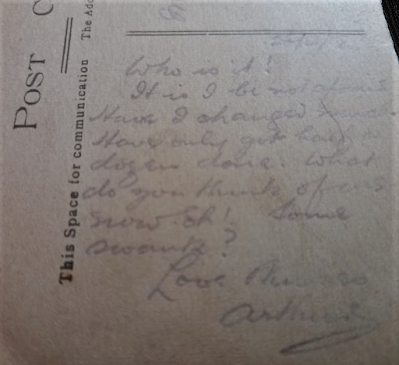 POST C
The Add
This Space for communication
Who is it!
It is I be not afraid
Have I changed
Have only got half a
dozen done. What
do you think of us
now. Eh! Some
swank?
Love
Arthur